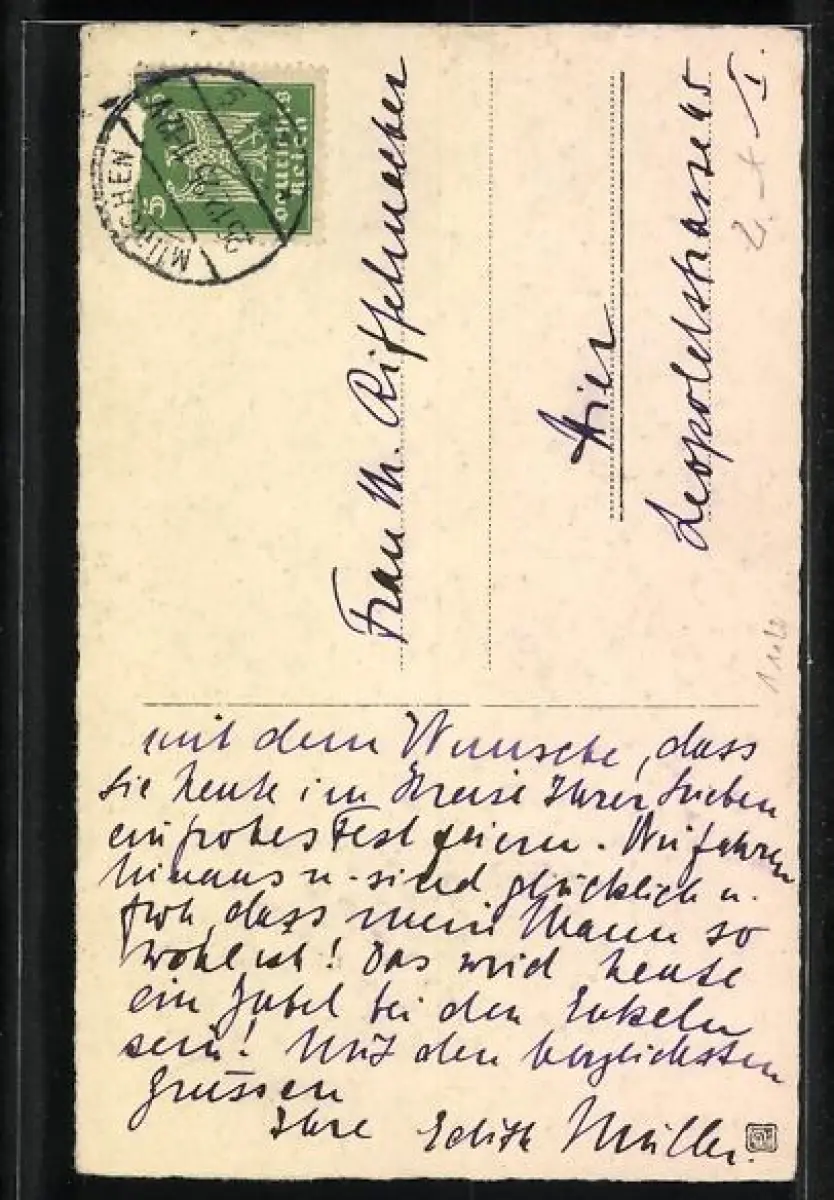 MÜNCHEN
Deutsches
Reich
5
5
Frau M. Riffelmacher
Hier
Leopoldstrasse 45
I.
mit dem Wunsche, dass
Sie heute im Kreise Ihrer Lieben
ein frohes Fest feiern. Wir fahren
hinaus u. sind glücklich u.
froh, dass mein Mann so
wohl ist! Das wird heute
ein Jubel bei den Enkeln
sein! Mit den herzlichsten
Grüssen
Ihre Edith Müller.